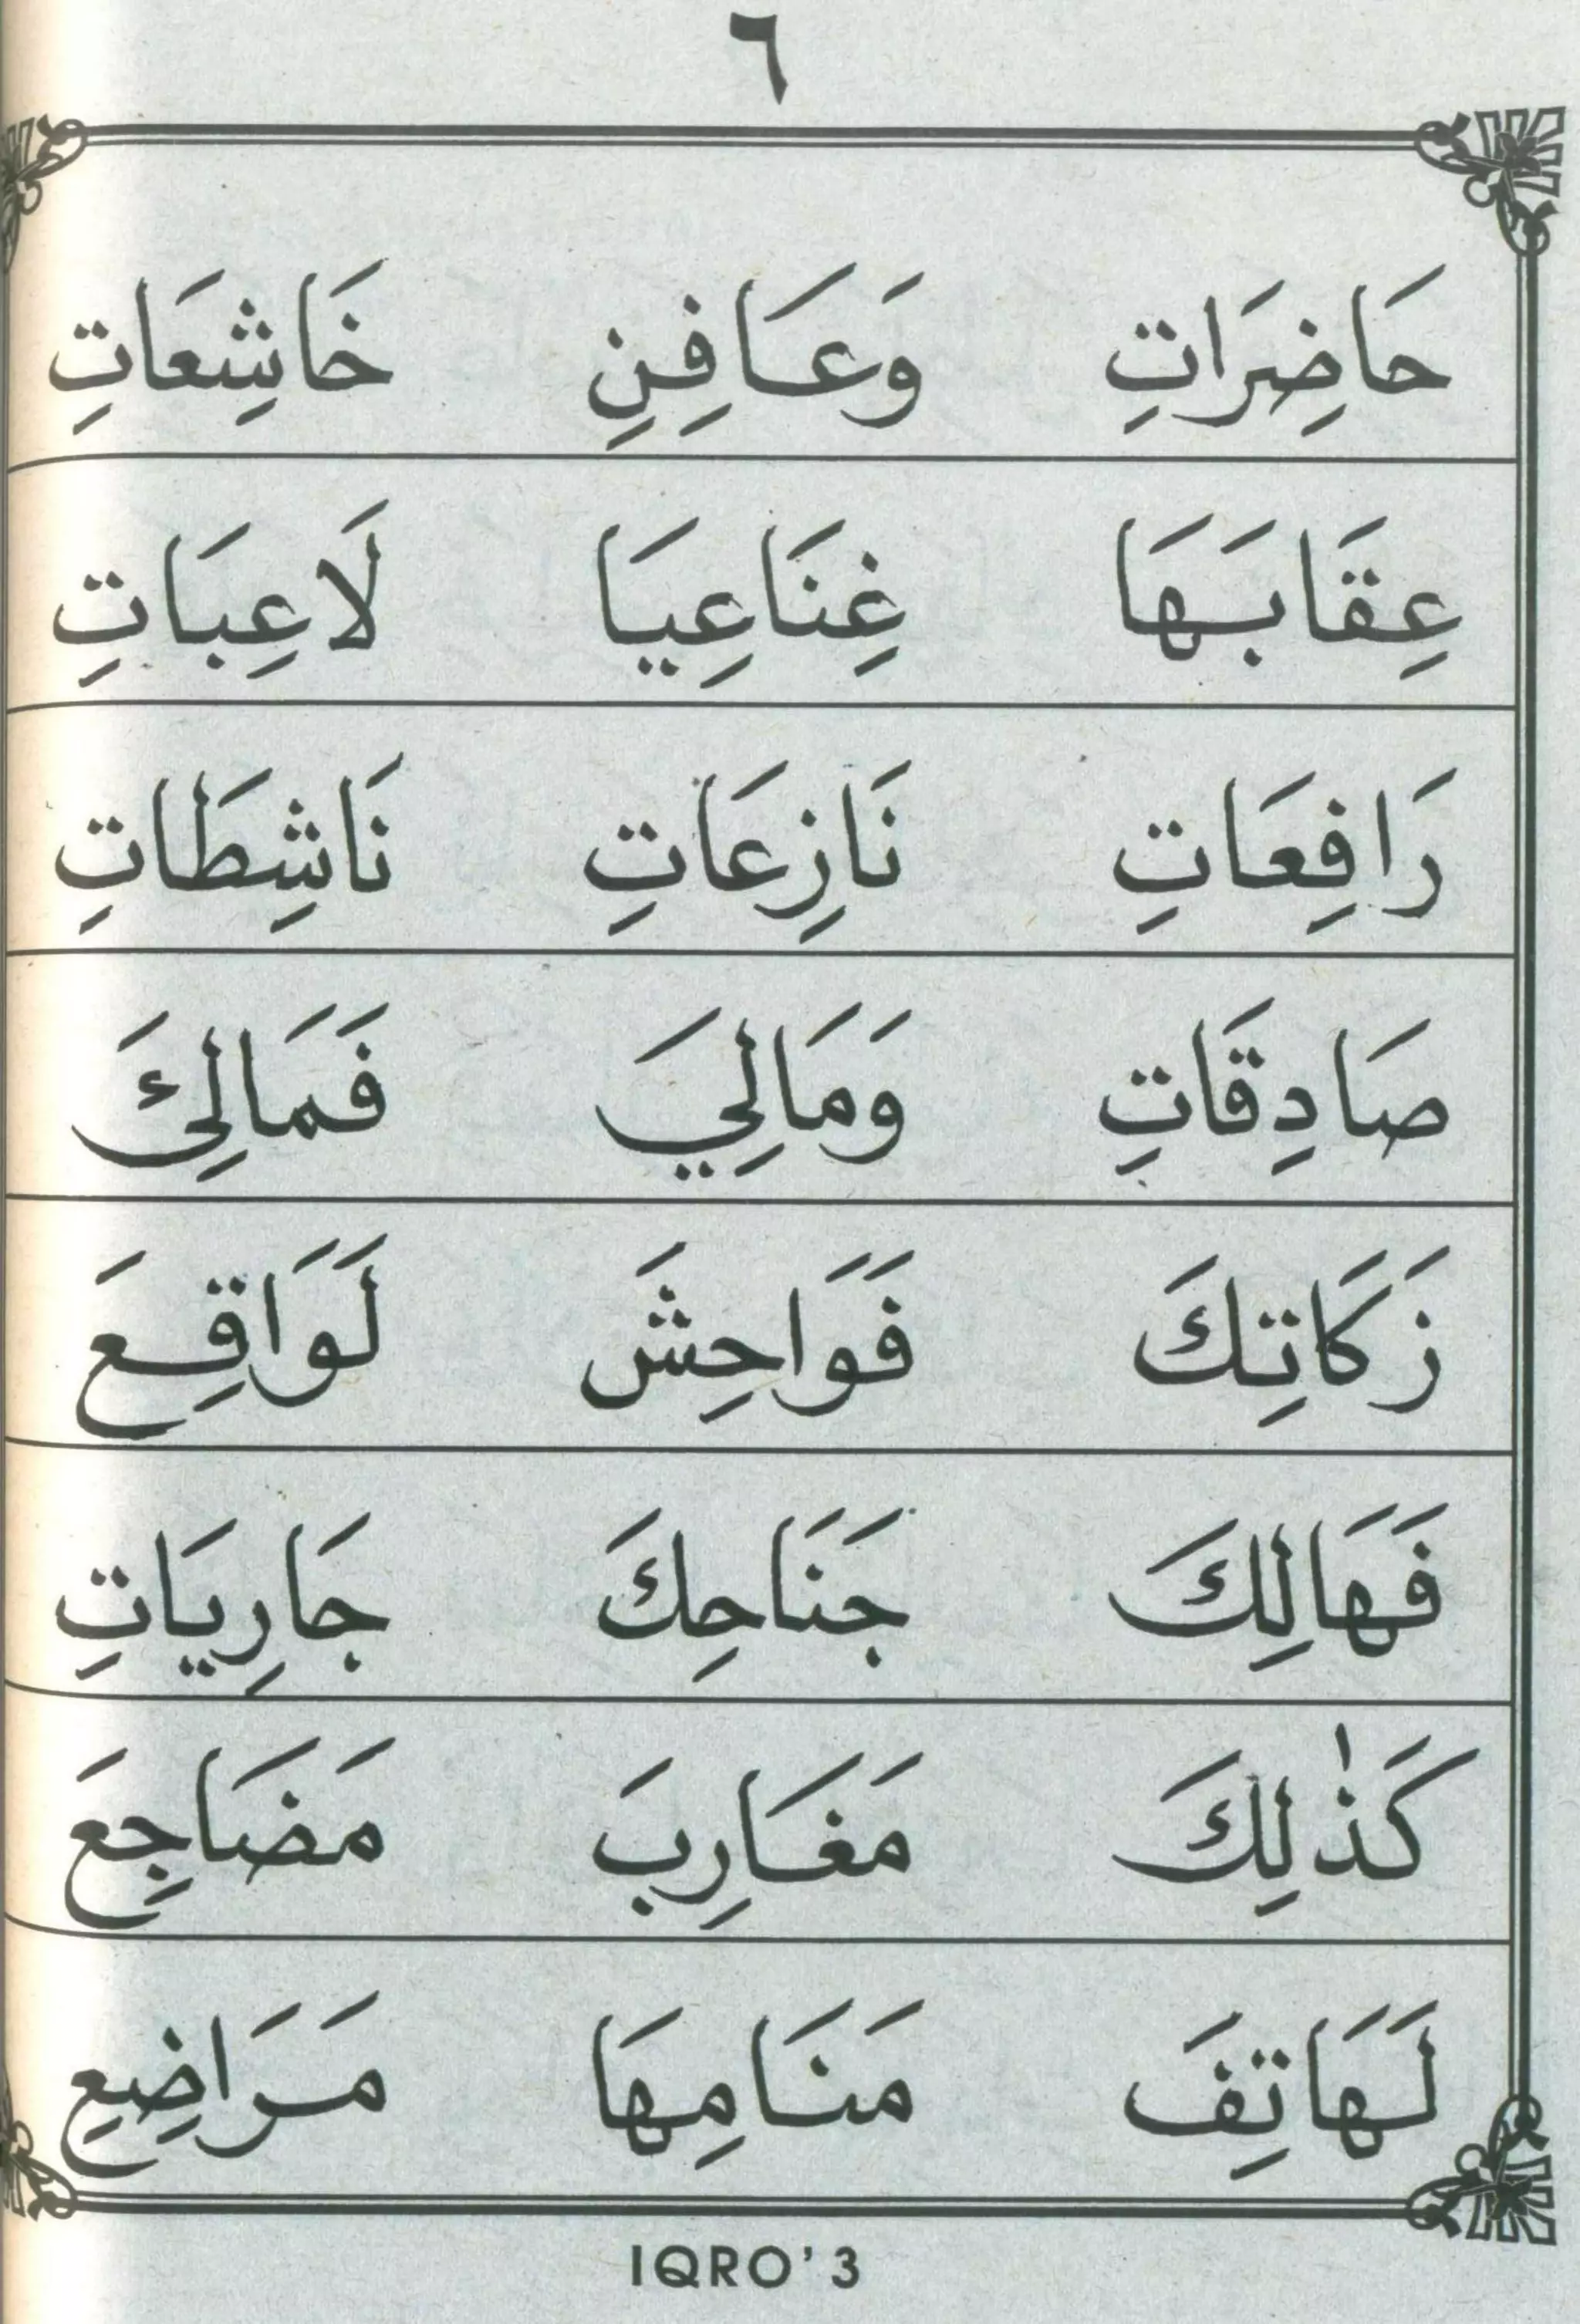 ٦
حَاضِرَاتِ وَعَافِنِ خَاشِعَاتِ
عِقَابَهَا غِنَاعِيَا لَاعِبَاتِ
رَافِعَاتِ نَازِعَاتِ نَاشِطَاتِ
صَادِقَاتِ وَمَالِيَ فَمَالِكَ
زَكَاتِكَ فَوَاحِشَ لَوَاقِعَ
فَهَالِكَ جَنَاحِكَ جَارِيَاتِ
كَذٰلِكَ مَغَارِبَ مَضَاجِعَ
لَهَاتِفَ مَنَامِهَا مَرَاضِعِ
IQRO'3